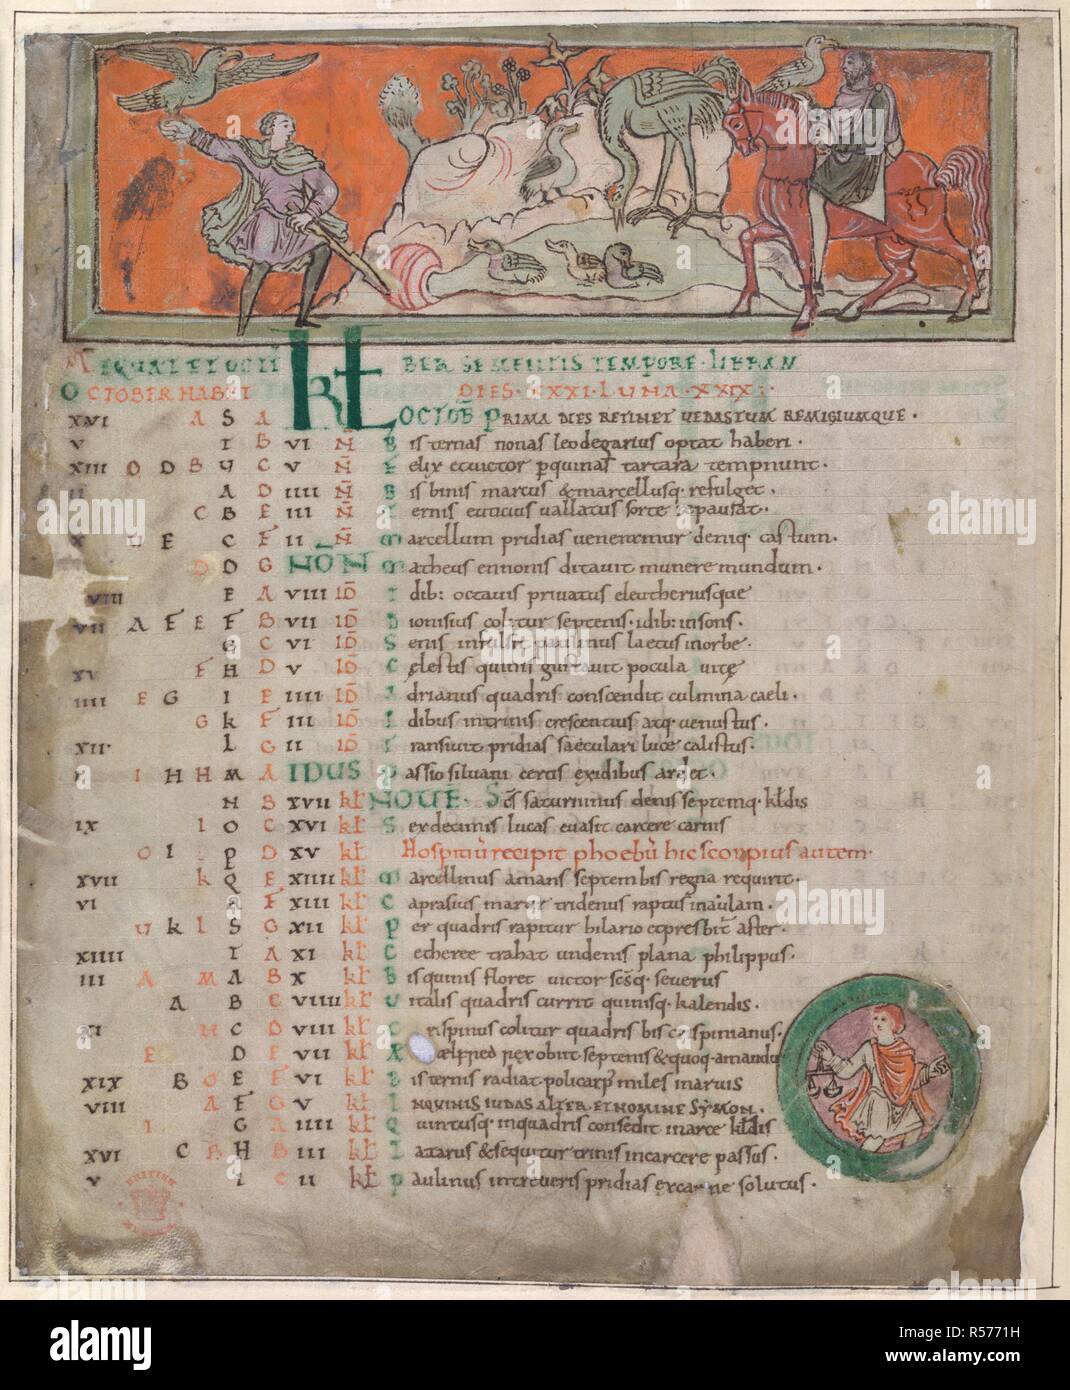 AEQUAT ET OCTI KL BER SEMENTIS TEMPORE LIBRAM
OCTOBER HABET DIES XXXI LUNA XXIX
XVI A S A OCTOB PRIMA DIES RETINET VEDASTUM REMIGIUMQUE.
V T B VI N Bis ternas nonas leodegarius optat haberi.
XIII O D B V C V N Felix et victor p quinas tartara tempnunt.
II A D IIII N Bis binis marcus & marcellusq. refulget.
C B E III N Ternis euticius vallatus sorte repausat.
X C F II N Marcellum pridias veneremur deniq. castum.
D D G NON Matheus ennonis ditavit munere mundum.
VIII E A VIII ID Idib: octavis privatus eleutheriusque
VII A F E F F B VII ID Dionisius colitur septenis. idib: insons.
G C VI ID Senis paulinus laetus in orbe.
XV F H D V ID Cęlestis quinis gustavit pocula vitę
IIII E G I E IIII ID Adrianus quadris conscendit culmina caeli.
G K F III ID Idibus in trinis crescentius atq. venustus.
XII. L G II ID Transivit pridias saeculari luce calistus.
I H H M A IDUS Passio silvani certis ex idibus ardet.
N B XVII KL NOVE. Scs saturninus denis septemq. kldis
IX I O C XVI KL Sex decimis lucas evasit carcere carnis
O I P D XV KL Hospitiu recipit phoebu hic scorpius autem.
XVII K Q E XIIII KL Marcellinus amans septembis regna requirit.
VI R F XIII KL Caprasius martir tridenus raptus in aulam.
V K L S G XII KL Per quadris rapitur hilario et presbit aster.
XIIII T A XI KL Cetheree trahat undenis plana philippus.
III A M A B X KL Bis quinis floret victor scsq. severus
A B C VIIII KL Vitalis quadris currit quinisq. kalendis.
XI N C D VIII KL Crispinus colitur quadris bis crispinianus.
E D E VII KL Aelfred rex obiit septenis & quoq. amandus
XIX B O E F VI KL Bis ternis radiat policarp miles in arvis
VIII A F G V KL IN QUINIS IUDAS ALTER. ET NOMINE SYMON.
I G A IIII KL Quintusq. in quadris consedit in arce kldis
XVI C B H B III KL Lazarus & sequitur trinis in carcere passus.
V I C II KL Paulinus in treveris pridias ex carne solutus.
BRITISH
MUSEUM
alamy
Image ID: R5771H
www.alamy.com